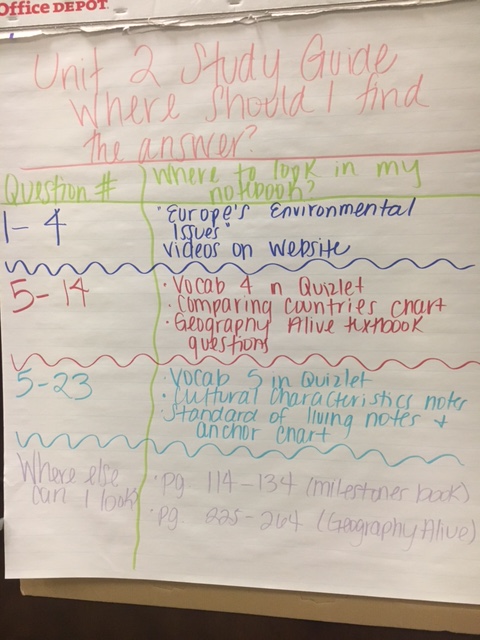 Office DEPOT.
Unit 2 Study Guide
Where Should I find
the answer?
Question #
Where to look in my
notbook?
1-4
"Europe's Environmental
Issues"
Videos on Website
5-14
· Vocab 4 n Quizlet
· Comparing Countries chart
· Geography Alive textbook
questions
5-23
· Vocab 5 in Quizlet
· Cultural Characteristics notes
· Standard of living notes +
anchor chart
Where else
can I look
· pg. 114-134 (milestones book)
· pg. 225-264 (Geography Alive)